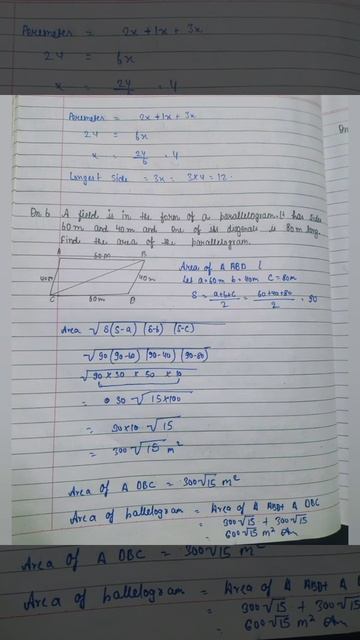 Perimeter = 2x + 1x + 3x
24 = 6x
x = 24/6 . 4
Perimeter = 2x + 1x + 3x
24 = 6x
x = 24/6 . 4
Longest side = 3x = 3x4 = 12.
On 6 A field is in the form of a parallelogram. It has sides
60 m and 40 m and one of its diagonals is 80 m long.
Find the area of the parallelogram.
A 60 M B
40m 40m
C 60m D
Area of A ABD
Let a = 60 m b = 40m C = 80m
S = a+b+c/2 = 60+40+80/2 = 90
Area √S(S-a) (S-b) (S-c)
√90 (90-60) (90-40) (90-80)
√90 x 30 x 50 x 10
= 30 √15x100
= 30x10 √15
= 300√15 m²
Area of A DBC = 300√15 m²
Area of pallelogram = Area of A ABD + A DBC
= 300√15 + 300√15
= 600√15 m² Ans
Area of A DBC = 300√15 m²
Area of pallelogram = Area of A ABD + A DBC
= 300√15 + 300√15
= 600√15 m² Ans